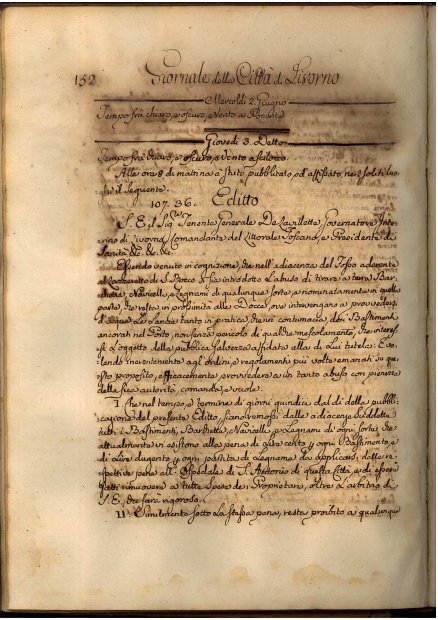 152 Giornale della Città di Livorno
Mercoldì 2. Giugno
Tempo frà chiaro, e oscuro, e vento a Ponente
Giovedì 3. Detto
Tempo frà chiaro, e oscuro, e vento a scilocco
Alle ore 8 di matina è stato pubblicato, ed affissato nei soliti luo-
ghi il seguente.
107. 36. Editto
S. E. il Sig.re Tenente Generale De Lavillette Governatore Inte-
rino di Livorno, Comandante del Littorale Toscano, e Presidente di
Sanità &c. &c. &c.
Essendo venuto in cognizione, che nell'adiacenza del Fosso aderente
al Lazzeretto di S. Rocco si sia introdotto l'abuso di tirare a terra Bar-
chette, Navicelli, e Legnami di qualunque sorte, e nominatamente in quella
parte, che resta in prossimità alla Bocca, ove intervengano a provvedersi
d'acqua le Lancie tanto in pratica, che in contumacia dei Bastimenti
ancorati nel Porto, non senza pericolo di qualche mescolamento, che interes-
si l'oggetto della pubblica salvezza affidata alla di Lui tutela: Vo-
lendo inerentemente agl'ordini, e regolamenti più volte emanati in que-
sto proposito, efficacemente provvedere a un tanto abuso con pienezza
della sua autorità, comanda, e vuole.
I. Che nel tempo, e termine di giorni quindici dal dì della pubbli-
cazione del presente Editto, siano remossi dalle adiacenze suddette
tutti i Bastimenti, Barchette, Navicelli, e Legnami di ogni sorte che
attualmente vi esistono alla pena di Lire cento p ogni Bastimento, e
di Lire dugento p ogni partita di Legname da applicarsi dette re-
spettive pene allo Ospedale di S. Antonio di questa Città, e di essere
fatti rimuovere a tutte spese dei Proprietari, oltre l'arbitrio di
S. E., che sarà rigoroso.
II. E similmente sotto la stessa pena, resta proibito a qualunque